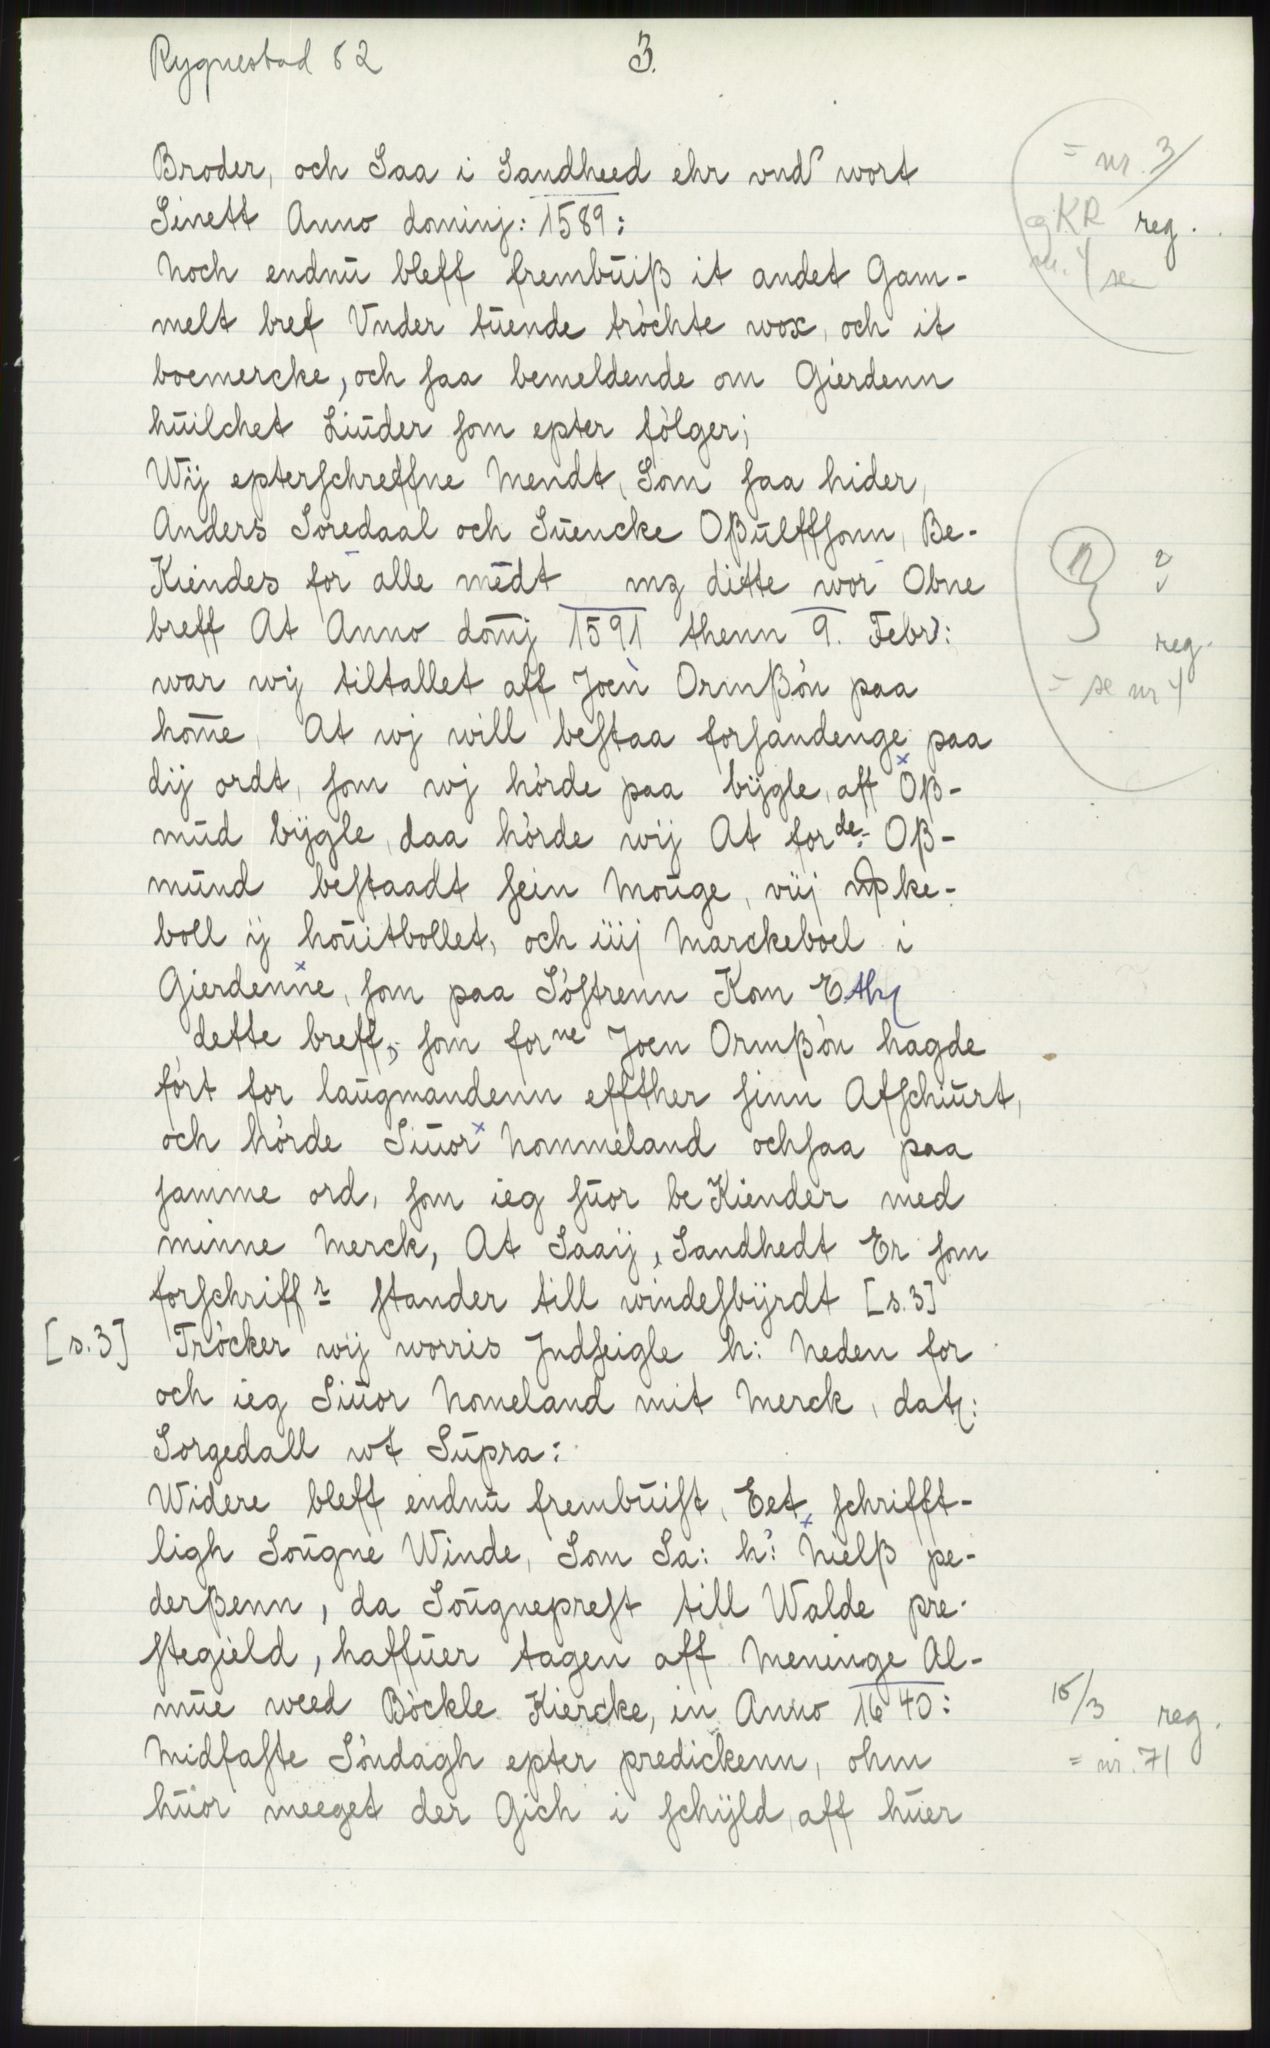 Rygnestad 82
3.
Broder, och Saa i Sandheed ehr vnd wort
Sinett Anno dominj: 1589:
Noch endnu bleff frembuiß it andet Gam-
melt bref Vnder tuende tröchte wox, och it
boemercke, och saa bemeldende om Gierdenn
huilchet Liuder som epter fölger;
Wij epterschreffne Mendt, Som saa hider,
Anders Soredaal och Suencke Oßulffsonn, Be-
Kiendes for alle mēdt mz ditte wor Obne
breff At Anno dom̄j 1591 thenn 9. Febr:
war wij tiltallet aff Joen Ormßön paa
hom̄e, At wj will bestaa forsandenge paa
dij ordt, som wj hörde paa bÿgle, aff Oß-
mud bÿgle, daa hörde wij At forde: Oß-
mund bestaadt sein Mouge, viij mke-
boll ij houitbollet, och iiij Marckeboel i
Gierdenne, som paa Söstrenn Kom Eth
dette breff, som forne Joen Ormßön hagde
fört for laugmandenn effther sinn Afschiurt,
och hörde Siuor Nommeland ochsaa paa
samme ord, som ieg suor beKiender med
minne Merck, At Saaij, Sandhedt Er som
forschriffr stander till windesbÿrdt [s.3]
[s.3] Tröcker wij worris Indseigle h: Neden for
och ieg Siuor Nomeland mit Merck, dat:
Sorgedall wt Supra:
Widere bleff endnu frembuist, Eet schrifft-
ligh Sougne Winde, Som Sa: h: Nielß pe-
derßenn, da Sougneprest till Walde pre-
stegield, haffuer tagen aff Meninge Al-
mue weed Böckle Kiercke, in Anno 1640:
Midfaste Söndagh epter predickenn, ohm
huor meeget der Gich i schÿld, aff huer
= nr. 3/
gKR reg.
nr. 4 se
n ?
reg.
= se nr 4
15/3 reg.
= nr. 71